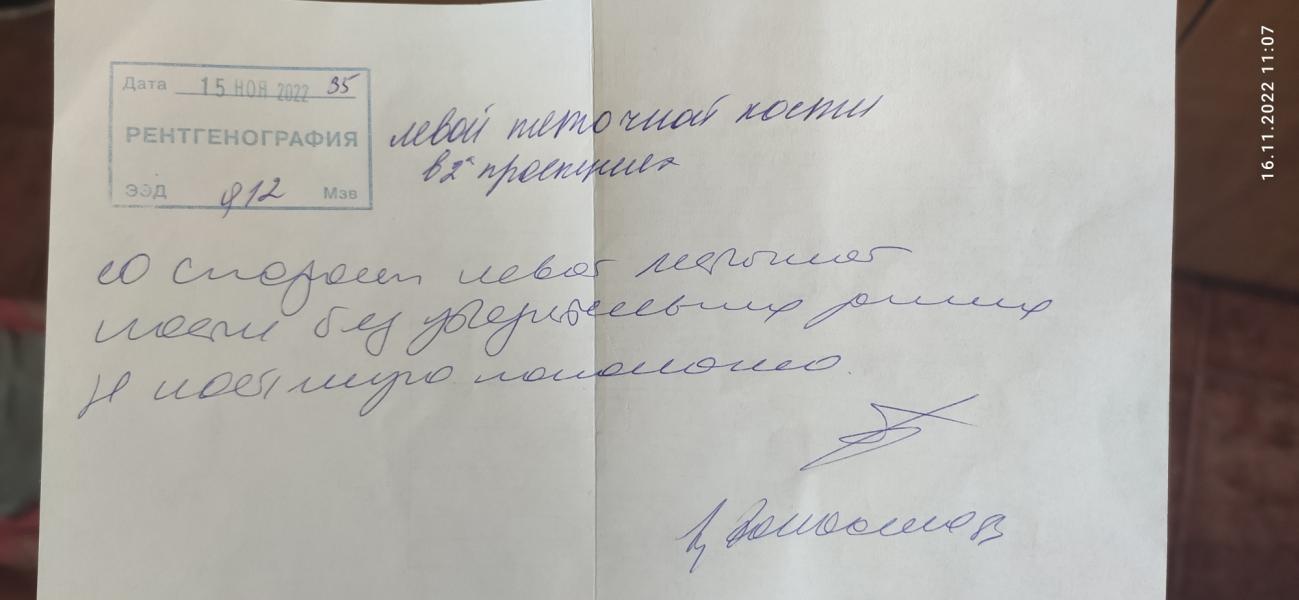 Дата 15 НОЯ 2022 35
РЕНТГЕНОГРАФИЯ
ЭЭД 0,12 Мзв
левой пяточной кости
в 2х проекциях
со стороны левой пяточной
кости без убедительных данных
за костную патологию.
16.11.2022 11:07